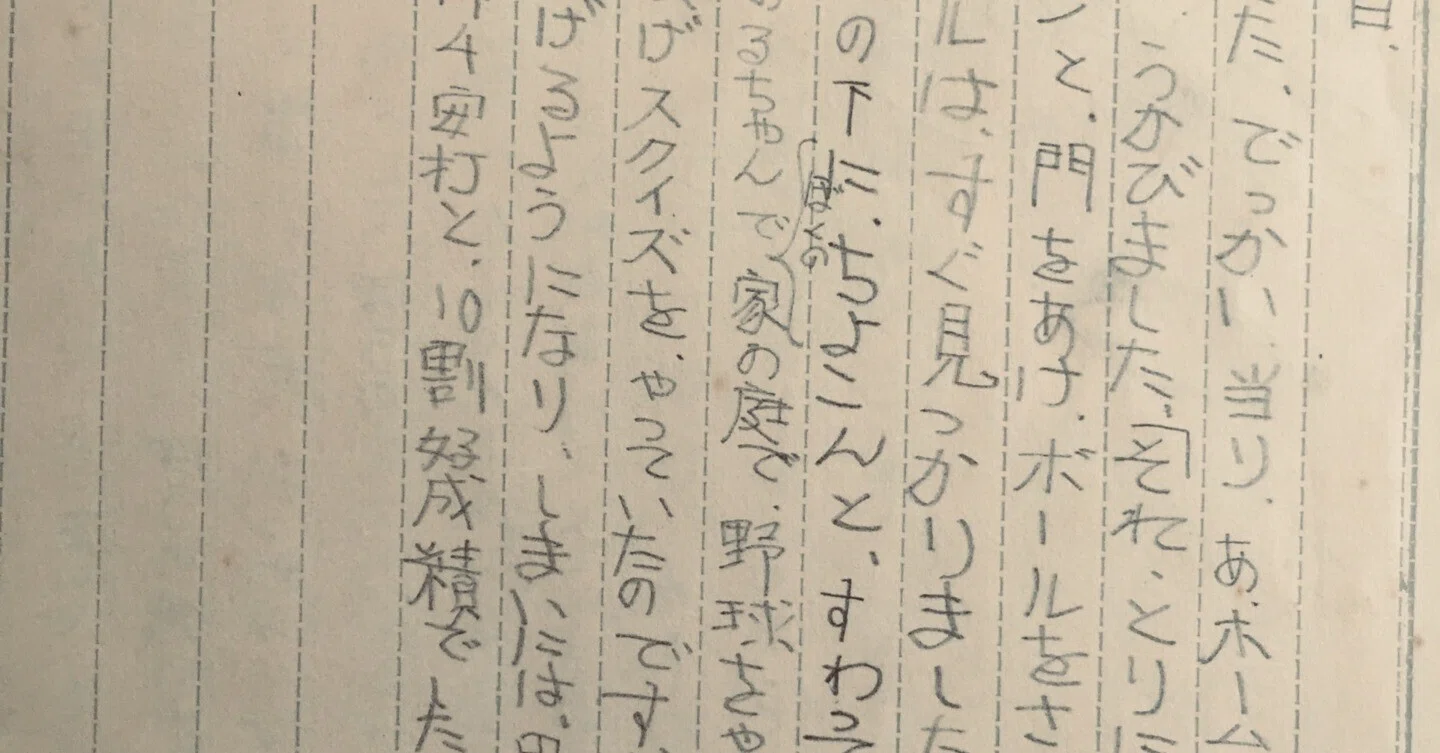 日、
た、でっかい当り、あ、ホーム
うかびました。「それ、とりに
ンと、門をあけ、ボールをさ
ルは、すぐ見つかりました
の下に、ちょこんと、すわって
ぼくの
るちゃんで家の庭で、野球をや
げスクイズを、やっていたのです、
げるようになり、しまいには、
安打と、10割好成積でした